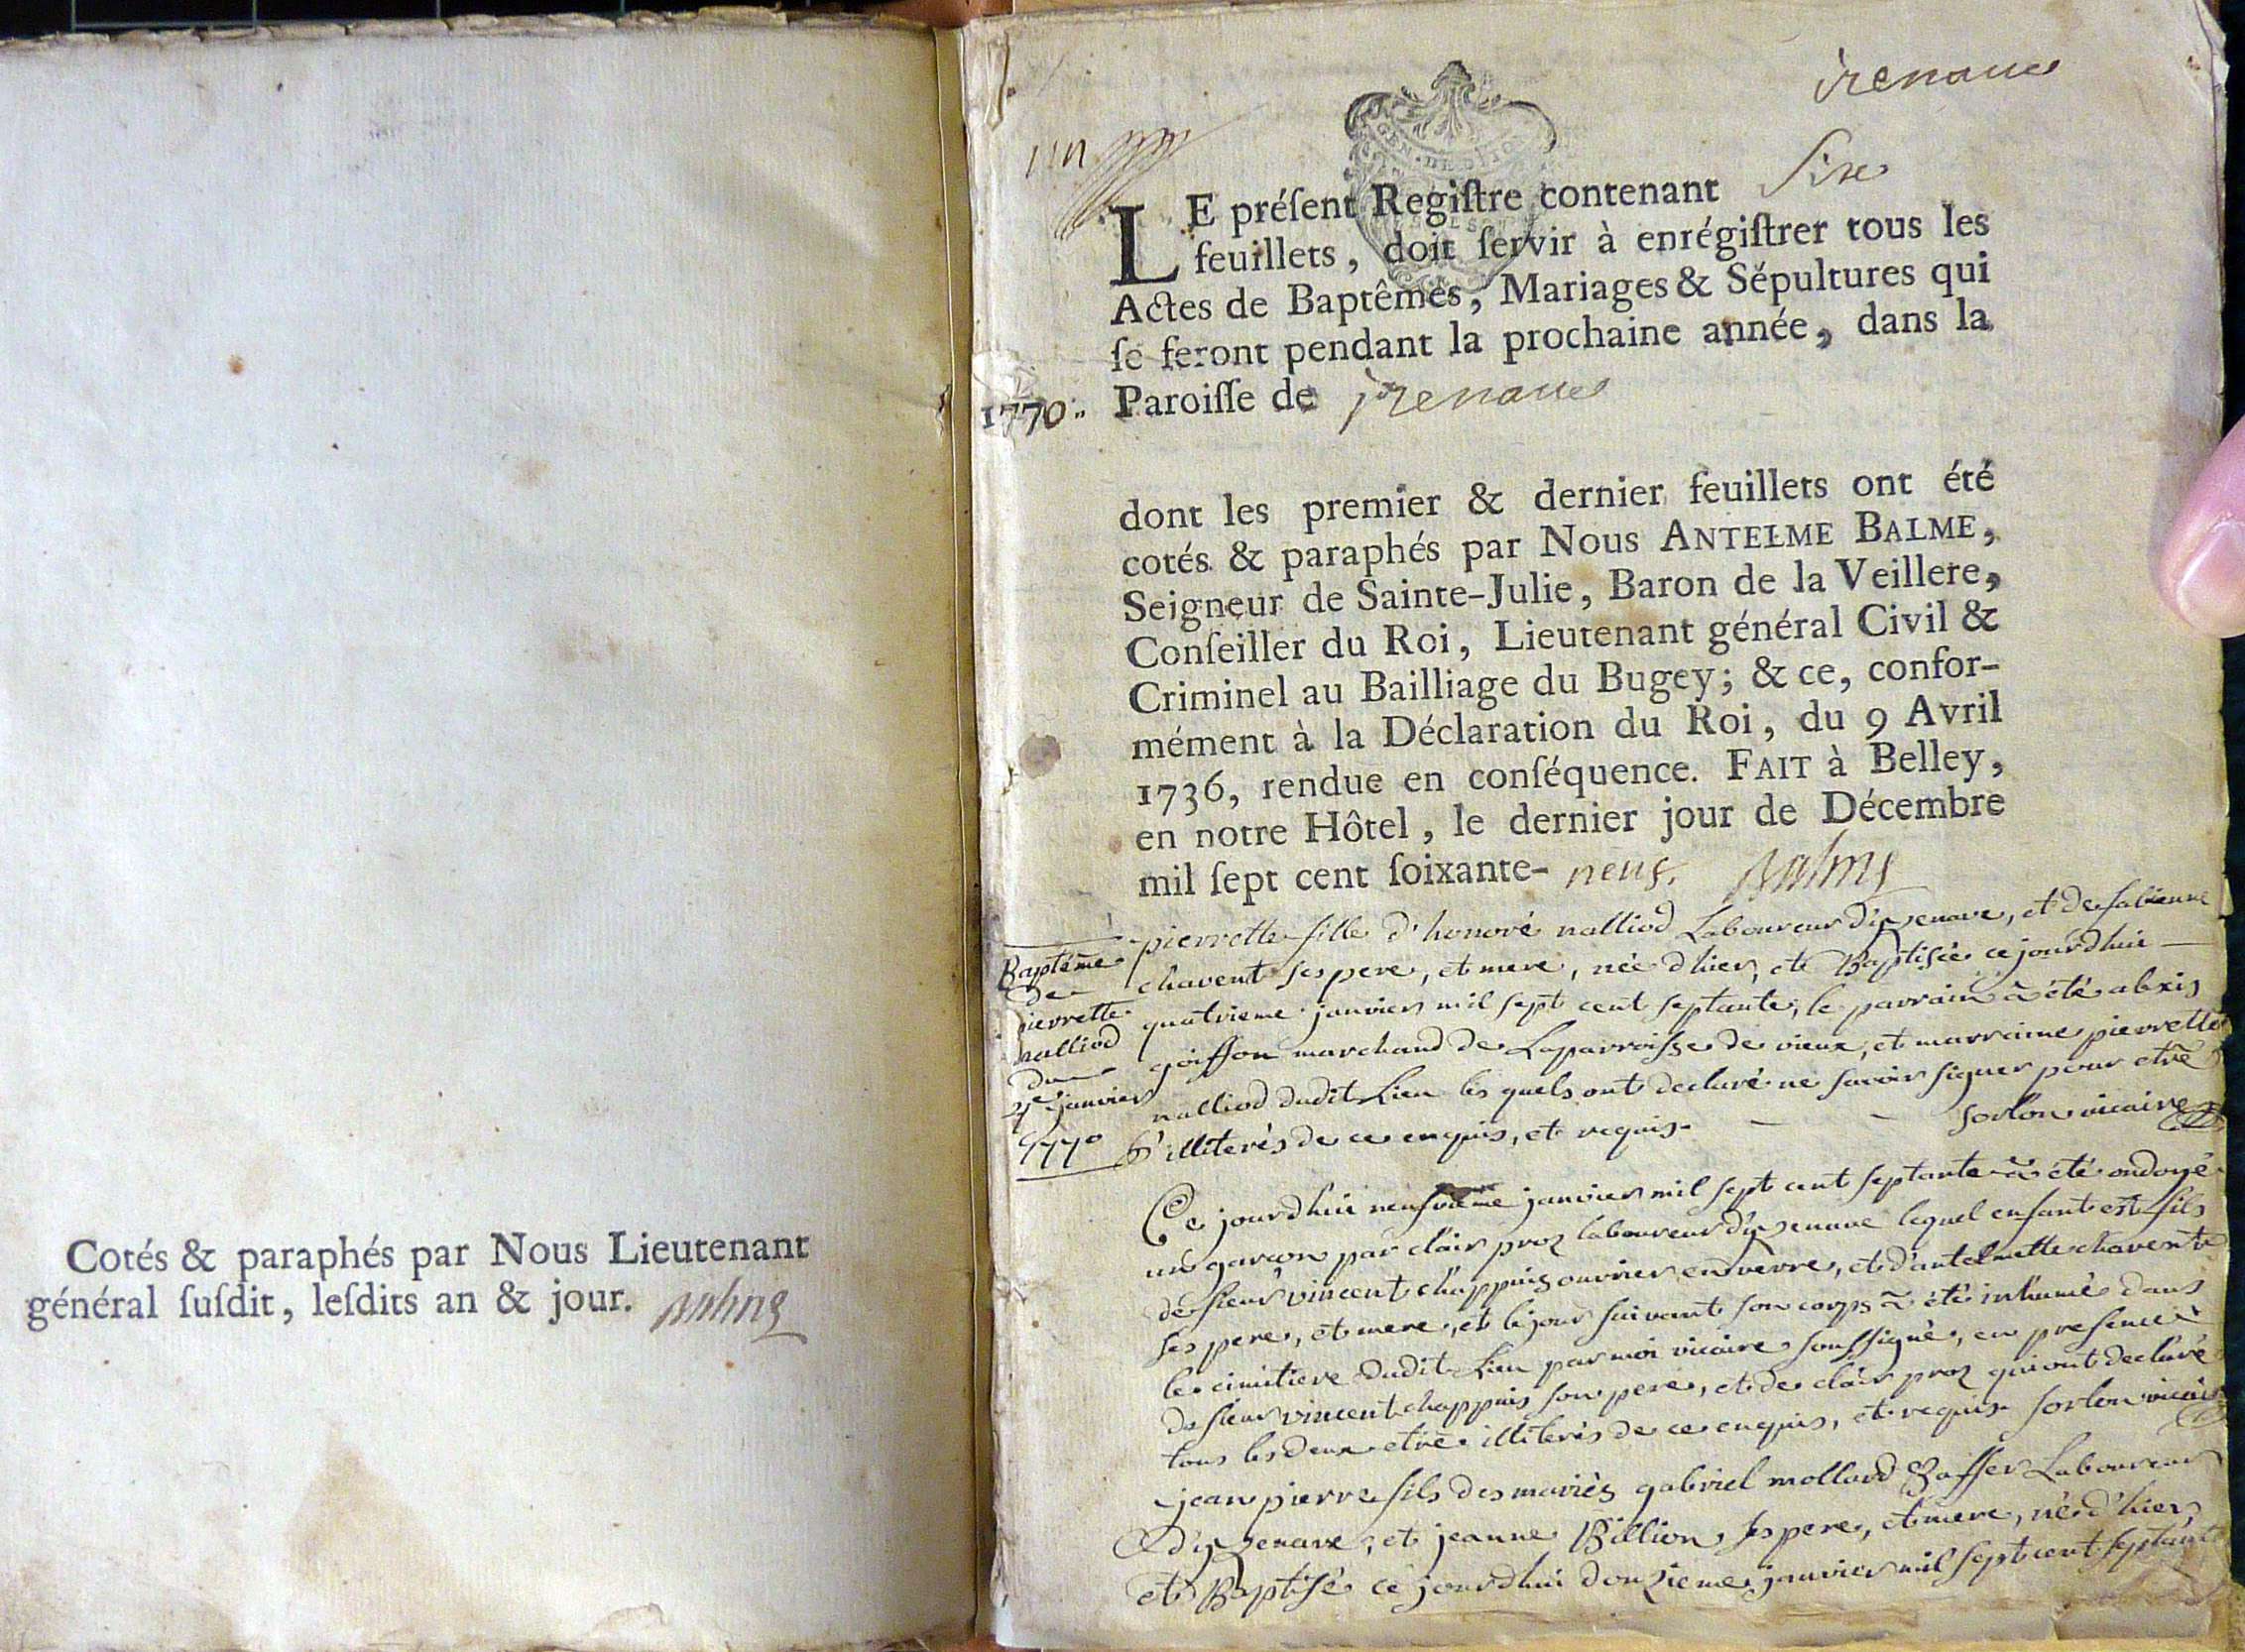 Cotés & paraphés par Nous Lieutenant
général ſuſdit, leſdits an & jour. Balme
irenave
un
LE préſent Regiſtre contenant Six
feuillets, doit ſervir à enrégiſtrer tous les
Actes de Baptêmes, Mariages & Sépultures qui
ſe feront pendant la prochaine année, dans la
1770.. Paroiſſe de irenave
dont les premier & dernier feuillets ont été
cotés & paraphés par Nous ANTELME BALME,
Seigneur de Sainte-Julie, Baron de la Veillere,
Conſeiller du Roi, Lieutenant général Civil &
Criminel au Bailliage du Bugey; & ce, confor-
mément à la Déclaration du Roi, du 9 Avril
1736, rendue en conſéquence. FAIT à Belley,
en notre Hôtel, le dernier jour de Décembre
mil ſept cent ſoixante- neuf. Balme
Baptéme
de
pierrette
nalliod
du
4e janvier
1770
pierrette fille d'honoré nalliod Laboureur d'izenave, et de fabienne
chavent ses pere, et mere, née d'hier, et Baptisée ce jourdhui
quatrieme janvier mil sept cent septante, le parrain à été alexis
goiffon marchand de Laparroisse de vieux, et marraine pierrette
nalliod dudit Lieu les quels ont declaré ne savoir signer pour etre
illiterés de ce enquis, et requis. sorlon vicaire
Ce jourdhui neufvieme janvier mil sept cent septante à été ondoyé
un garçon par clair proz laboureur d'izenave lequel enfant est fils
de sieur vincent chappuis ouvrier en verre, et d'antelmette chavent
ses pere, et mere, et le jour suivant son corps à été inhumé dans
le cimitiere dudit Lieu par moi vicaire soussigné, en presence
de sieur vincent chappuis son pere, et de clair proz qui ont declaré
tous les deux etre illiterés de ce enquis, et requis sorlon vicaire
jean pierre fils des mariés gabriel mollard Laboureur
d'izenave, et jeanne Billion ses pere, et mere, né d'hier,
et Baptisé ce jourdhui douzieme janvier mil sept cent septante